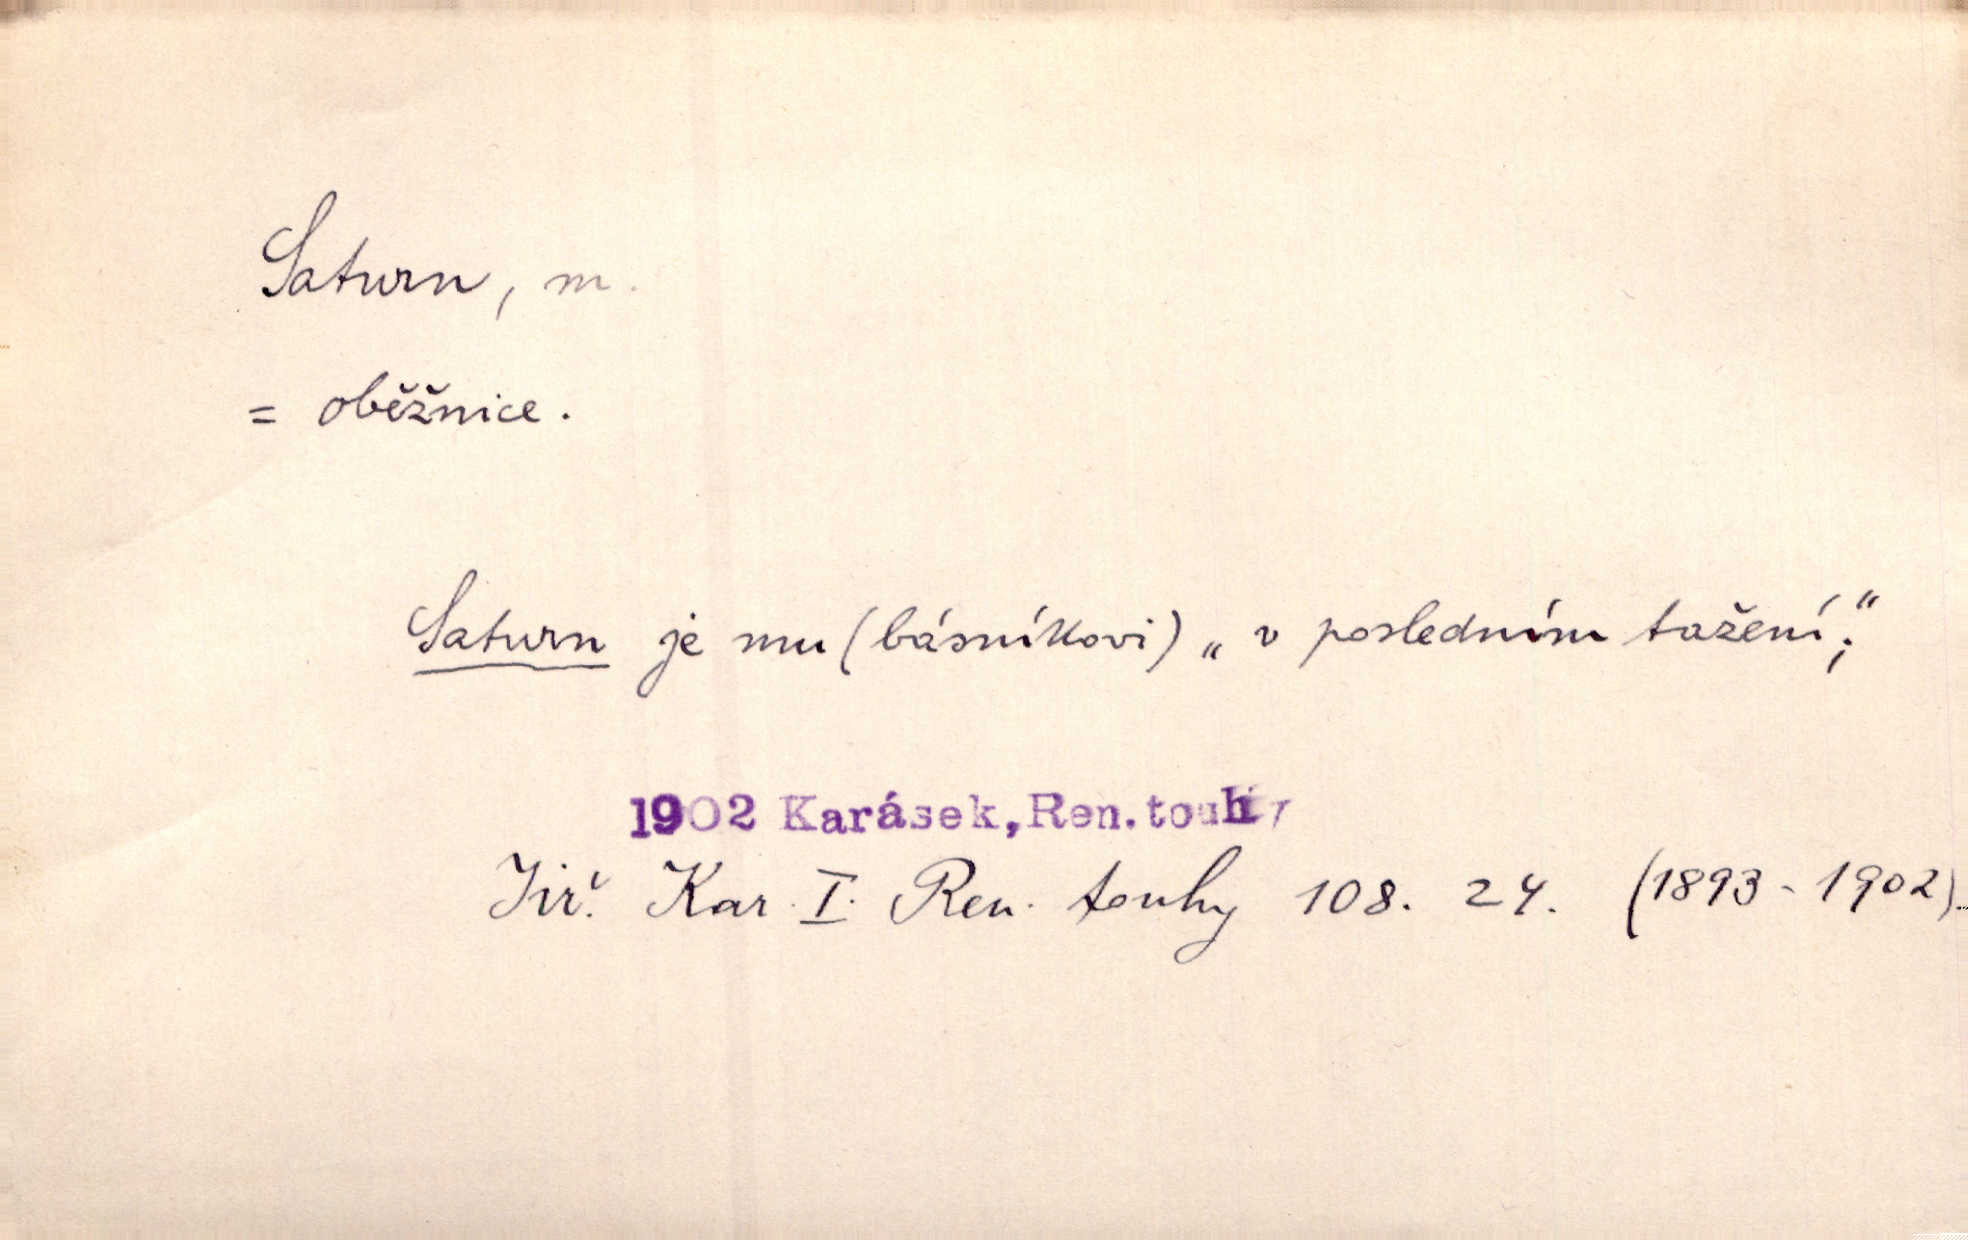 Saturn, m.
= oběžnice.
Saturn je mu (básníkovi) „v posledním tažení“;
1902 Karásek, Ren. touhy
Jiř. Kar. I. Ren. touhy 108. 24. (1893-1902).